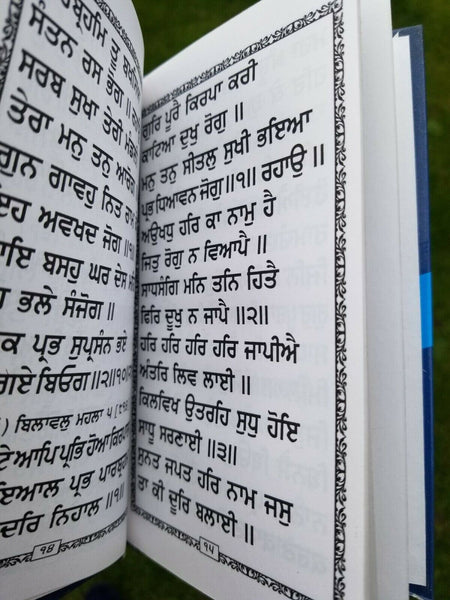 ਸੰਤਨ ਰਸ ਭੋਗ ॥
ਸਰਬ ਸੁਖਾ ਤੇਰੀ
ਤੇਰਾ ਮਨੁ ਤਨੁ ਆਰੋਗ
ਗੁਨ ਗਾਵਹੁ ਨਿਤ
ਅਵਖਦ ਜੋਗ ॥੧॥
ਬਸਹੁ ਘਰ ਦੇਸ
ਭਲੇ ਸੰਜੋਗ ॥
ਪ੍ਰਭ ਸੁਪ੍ਰਸੰਨ ਭਏ
ਗਏ ਬਿਓਗ ॥੨॥੧੦
) ਬਿਲਾਵਲੁ ਮਹਲਾ ੫
ਆਪਿ ਪ੍ਰਭਿ ਹੋਆ
ਪ੍ਰਭ ਪਾਰਬ੍ਰਹ
ਦਰਿ ਨਿਹਾਲ ॥੧॥
੧੪
ਗੁਰਿ ਪੂਰੈ ਕਿਰਪਾ ਕਰੀ
ਕਾਟਿਆ ਦੁਖੁ ਰੋਗੁ ॥
ਮਨੁ ਤਨੁ ਸੀਤਲੁ ਸੁਖੀ ਭਇਆ
ਪ੍ਰਭ ਧਿਆਵਨ ਜੋਗੁ ॥੧॥ ਰਹਾਉ ॥
ਅਉਖਧੁ ਹਰਿ ਕਾ ਨਾਮੁ ਹੈ
ਜਿਤੁ ਰੋਗੁ ਨ ਵਿਆਪੈ ॥
ਸਾਧਸੰਗਿ ਮਨਿ ਤਨਿ ਹਿਤੈ
ਫਿਰਿ ਦੂਖੁ ਨ ਜਾਪੈ ॥੨॥
ਹਰਿ ਹਰਿ ਹਰਿ ਹਰਿ ਜਾਪੀਐ
ਅੰਤਰਿ ਲਿਵ ਲਾਈ ॥
ਕਿਲਵਿਖ ਉਤਰਹਿ ਸੁਧੁ ਹੋਇ
ਸਾਧੂ ਸਰਣਾਈ ॥੩॥
ਸੁਨਤ ਜਪਤ ਹਰਿ ਨਾਮ ਜਸੁ
ਤਾ ਕੀ ਦੂਰਿ ਬਲਾਈ ॥
੧੫